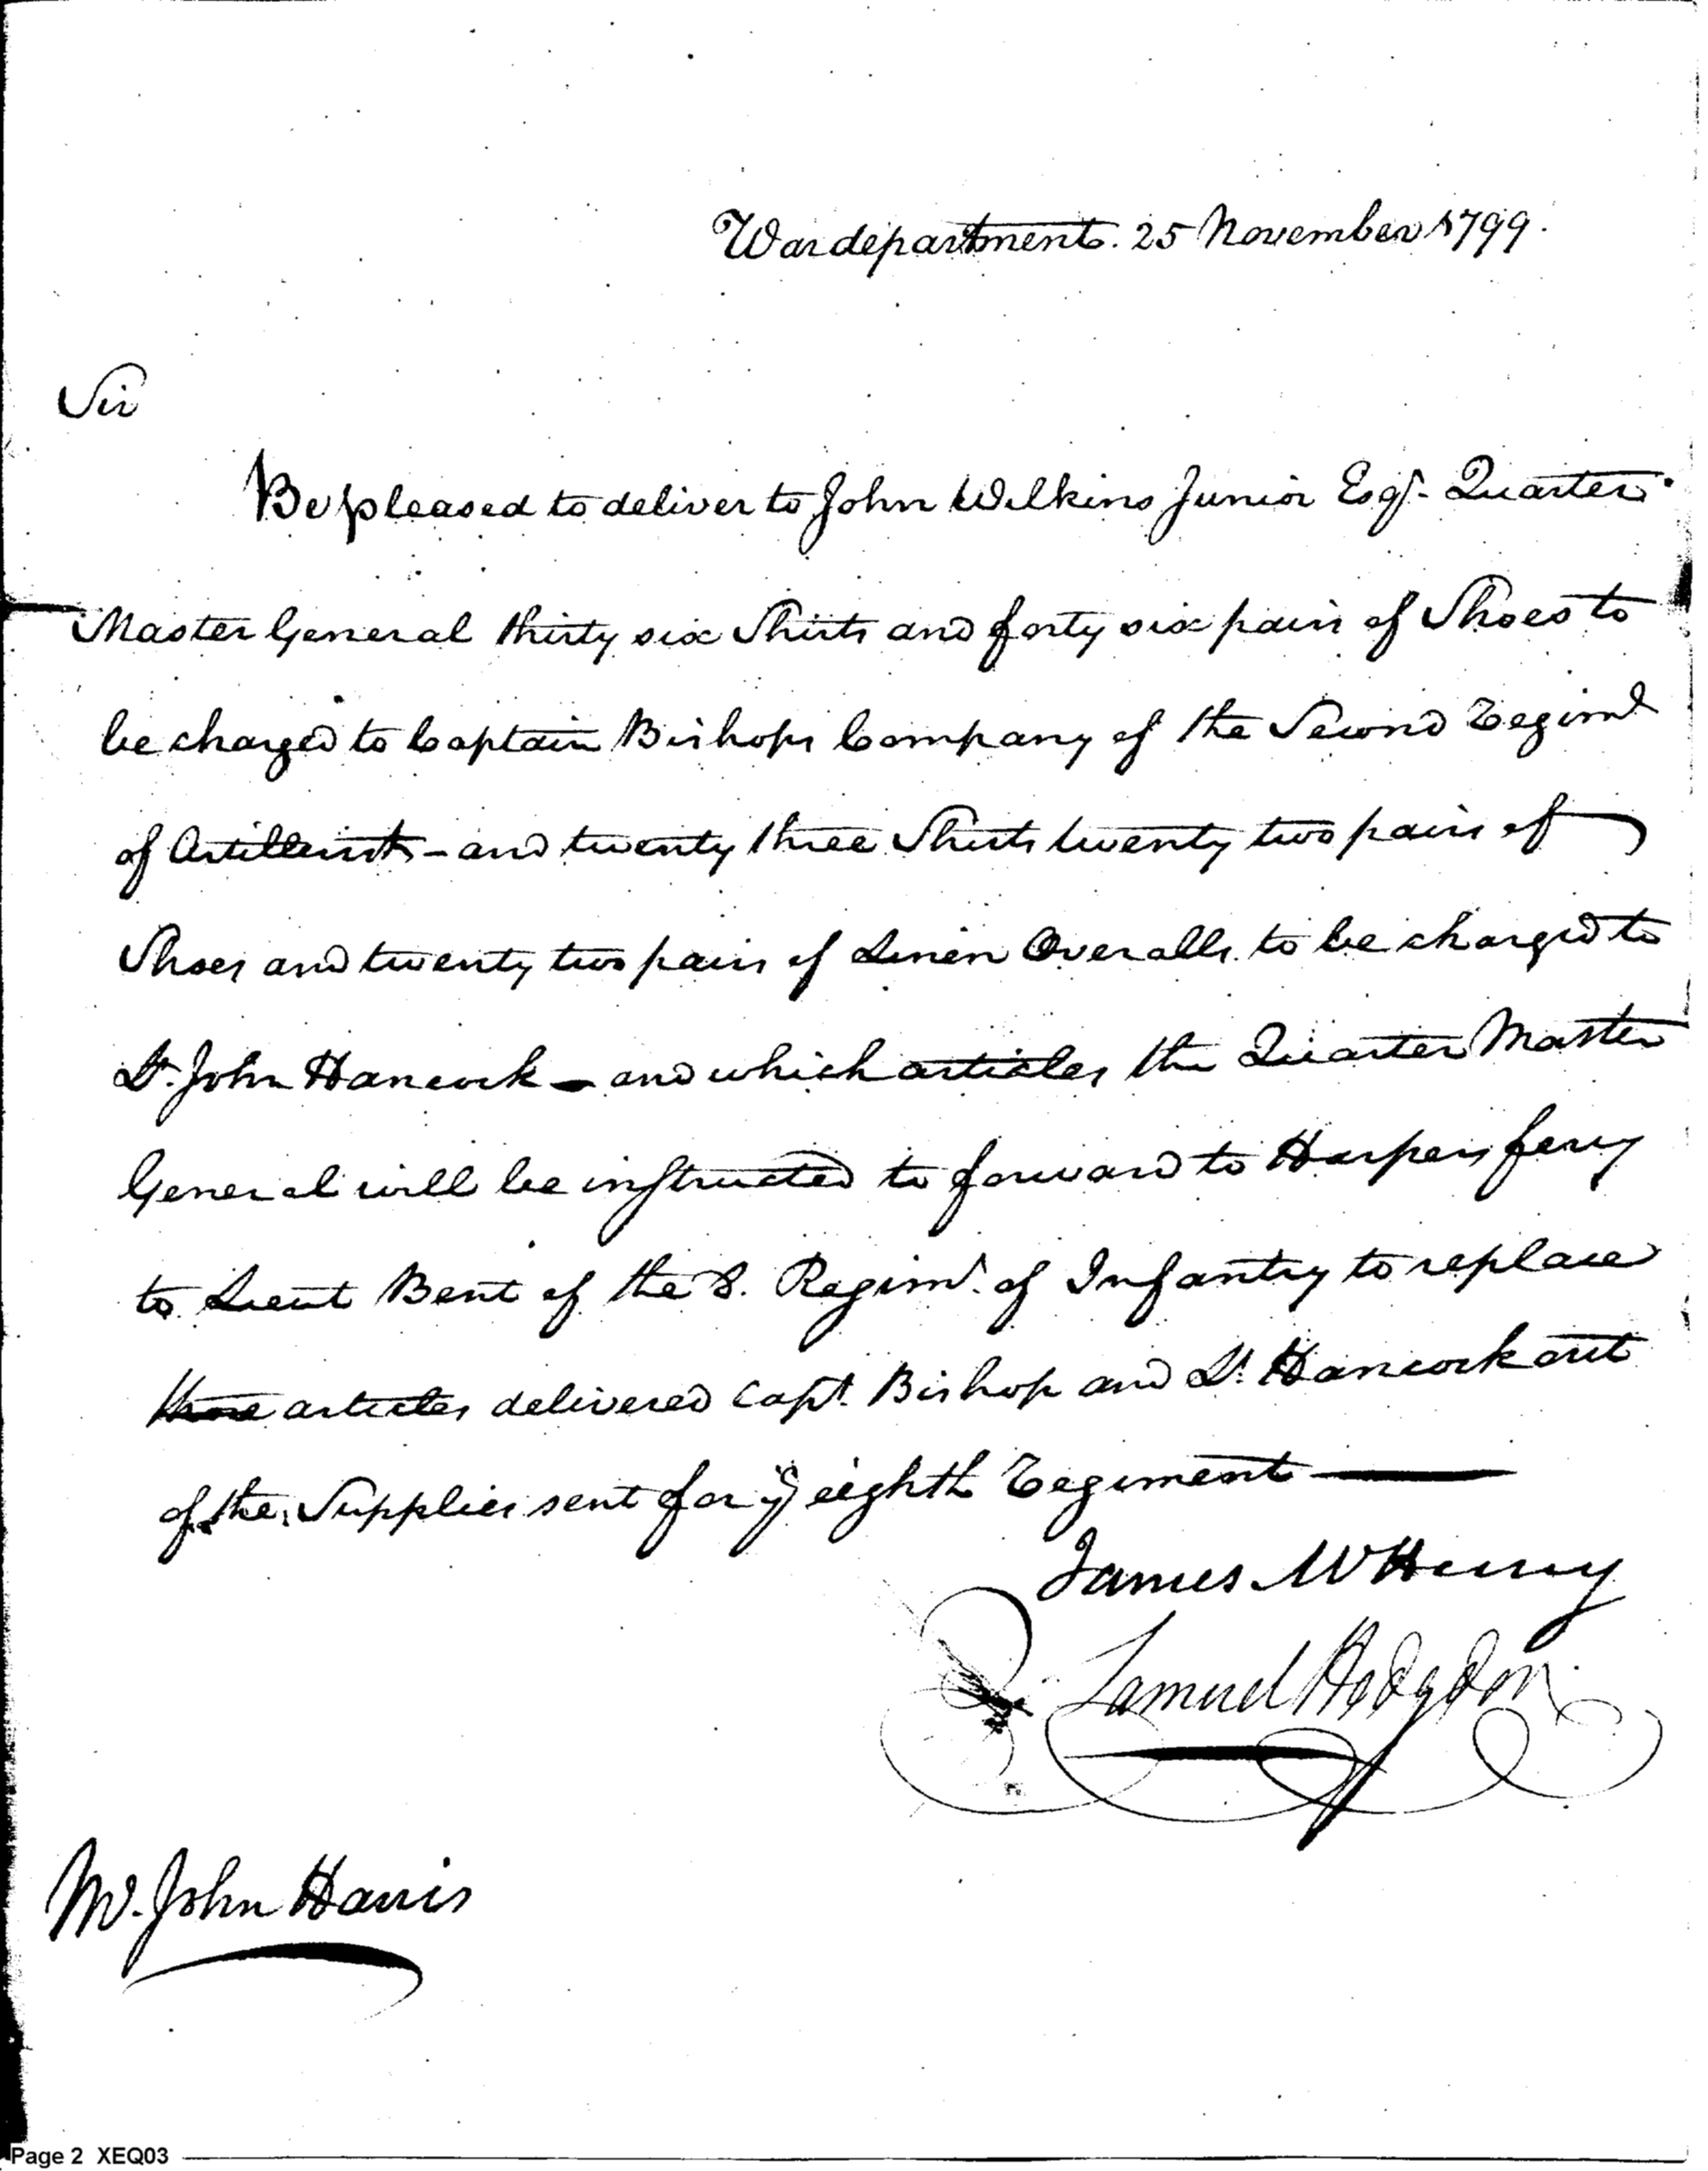 War department. 25 November 1799.
Sir
Be pleased to deliver to John Wilkins Junior Esqr. Quarter
Master General thirty six Shirts and forty six pairs of Shoes to
be charged to Captain Bishops Company of the Second Regimt
of Artillerists - and twenty three Shirts twenty two pairs of
Shoes and twenty two pairs of Linen Overalls to be charged to
Lt. John Hancock - and which articles the Quarter Master
General will be instructed to forward to Harpers ferry
to Lieut Bent of the 8. Regimt. of Infantry to replace
those articles delivered Capt. Bishop and Lt. Hancock out
of the Supplies sent for ye eighth Regiment
James McHenry
Samuel Hodgdon
Mr. John Harris
Page 2 XEQ03